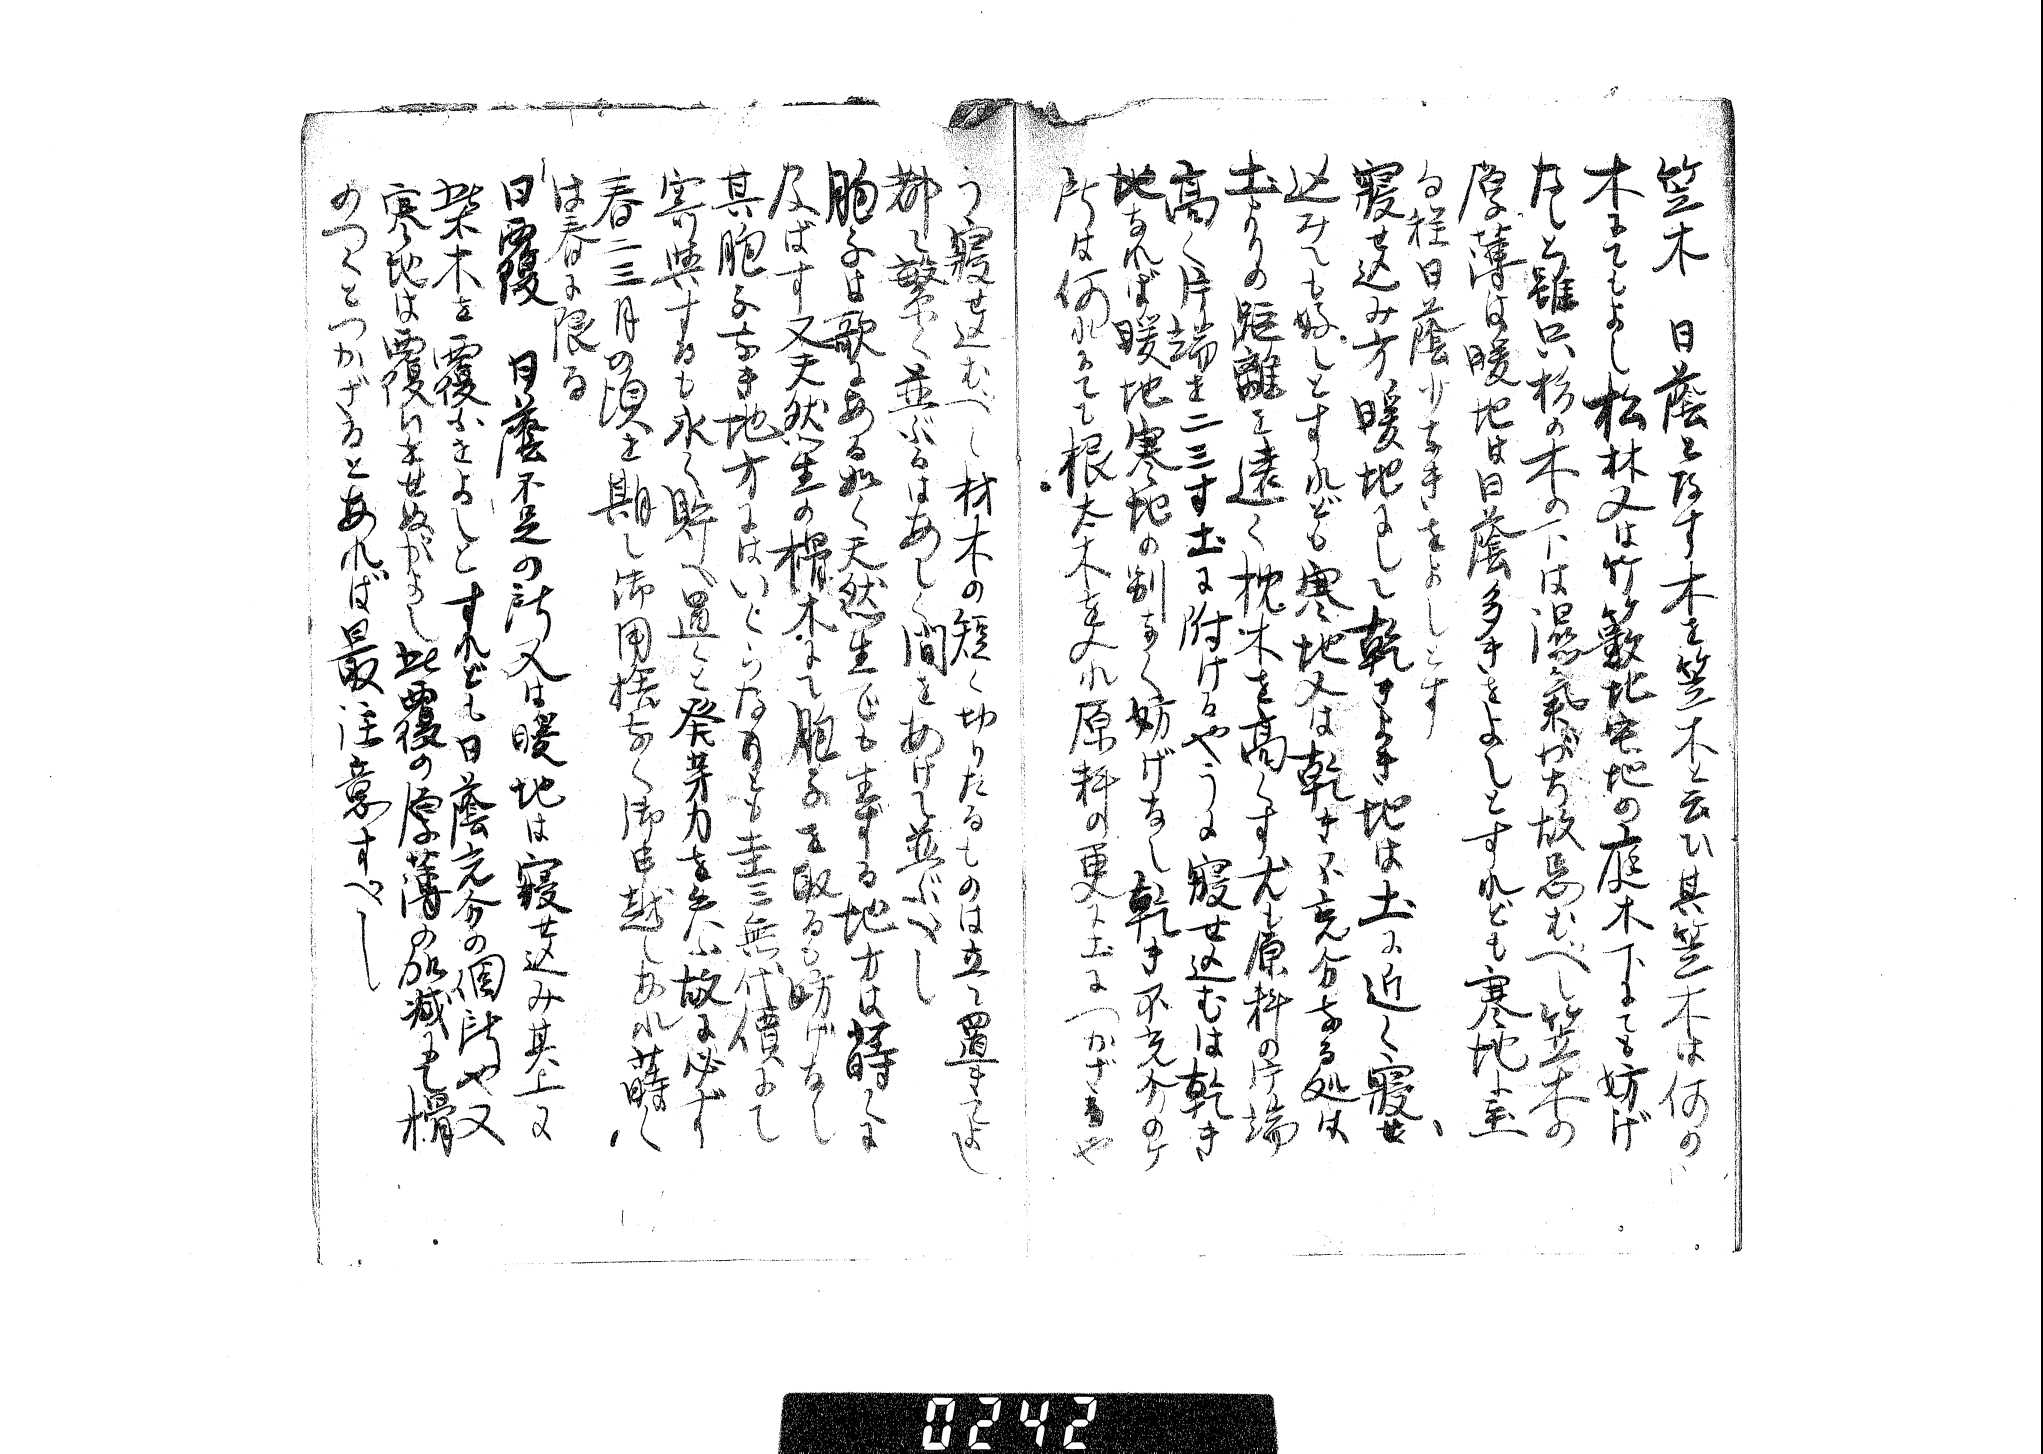 笠木　日蔭と為す木を笠木と云ひ其笠木は何の
木にてもよし松林又は竹籔地宅地の庭木下にても妨げ
なしと雖只杉の木の下は湿氣がち故忌むべし笠木の
厚薄は暖地は日蔭多きをよしとすれども寒地に至
る程日蔭少なきをよしとす
寢せ込み方暖地にして乾きよき地は土に近く寢せ
込みても好しとすれども寒地又は乾き不充分なる処は
土よりの距離を遠く枕木を高くす尤も原料の片端
高く片端を二三寸土に附けるやうに寢せ込むは乾き
地なれば暖地寒地の別なく妨げなし乾き不充分の
所は何れにても根太木を入れ原料の更に土につかざるや
う寢せ込むべし材木の短く切りたるものは立て置きてよし
都て繁く並ぶるはあしく間をあけて並ぶべし
胞子は歌にある如く天然生でも生ずる地方は蒔くに
及ばす又天然生の榾木にて胞子を取るも妨げなし
其胞子なき地方にはいくらなりとも圭三無代價にて
寄與するも永く貯へ置くと発芽力を失ふ故に必ず
春二三月の頃を期し御用捨なく御申越しあれ蒔く
は春に限る
日覆　日蔭不足の所又は暖地は寢せ込み其上に
柴木を覆ふをよしとすれども日蔭充分の個所や又
寒地は覆ひをせぬがよし此覆の厚薄の加減も榾
のつくとつかざるとあれば最注意すべし
0242